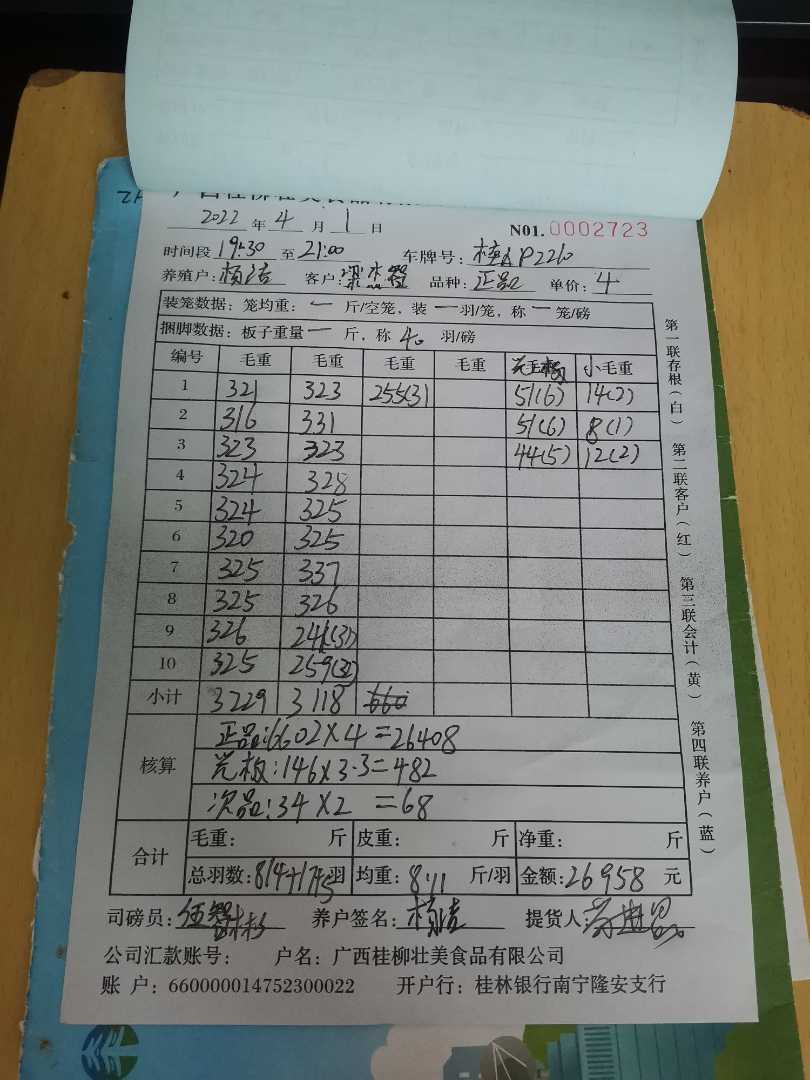 2022 年 4 月 1 日 N01. 0002723
时间段 19:30 至 21:00 车牌号: 桂AP2260
养殖户: 杨洁 客户: 梁杰智 品种: 正品 单价: 4
装笼数据: 笼均重: 一 斤/空笼, 装 一 羽/笼, 称 一 笼/磅
捆脚数据: 板子重量 一 斤, 称 40 羽/磅
编号 毛重 毛重 毛重 毛重 小毛重
1 321 323 255(31) 51(6) 14(2)
2 316 331 51(6) 8(1)
3 323 323 44(5) 12(2)
4 324 328
5 324 325
6 320 325
7 325 337
8 325 326
9 326
10 325 259(32)
小计 3229 3118 660
核算
正品:6602×4=26408
光板:146×3.3=482
次品:34×2 =68
合计
毛重: 斤 皮重: 斤 净重: 斤
总羽数: 814+17+5羽 均重: 8.11 斤/羽 金额: 26958 元
司磅员: 养户签名: 杨洁 提货人:
公司汇款账号: 户名: 广西桂柳壮美食品有限公司
账 户: 660000014752300022 开户行: 桂林银行南宁隆安支行
第一联存根(白) 第二联客户(红) 第三联会计(黄) 第四联养户(蓝)